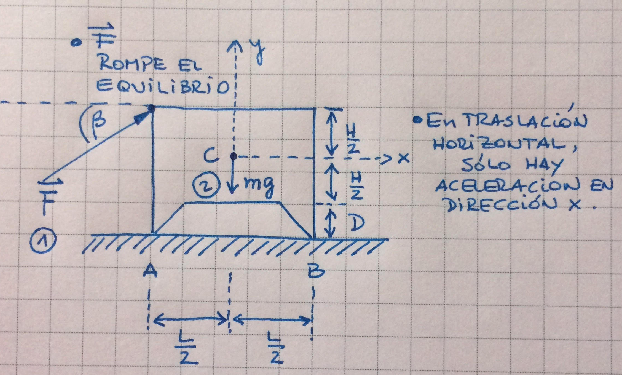 • F
ROMPE EL
EQUILIBRIO
y
β
C
x
② mg
F
①
H/2
H/2
D
A
B
L/2
L/2
• En TRASLACIÓN
HORIZONTAL,
SÓLO HAY
ACELERACION EN
DIRECCIÓN X.